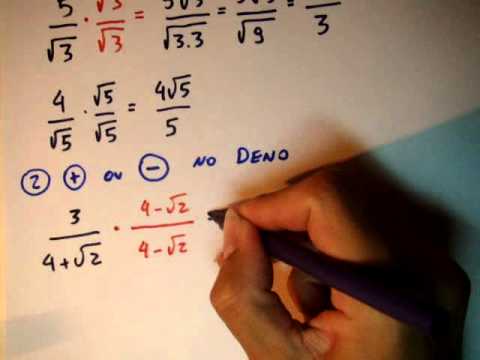 5/√3 · √3/√3 = 5√3/√3.3 = 5√3/√9 = 5√3/3
4/√5 · √5/√5 = 4√5/5
2 + ou - no Deno
3/4+√2 · 4-√2/4-√2